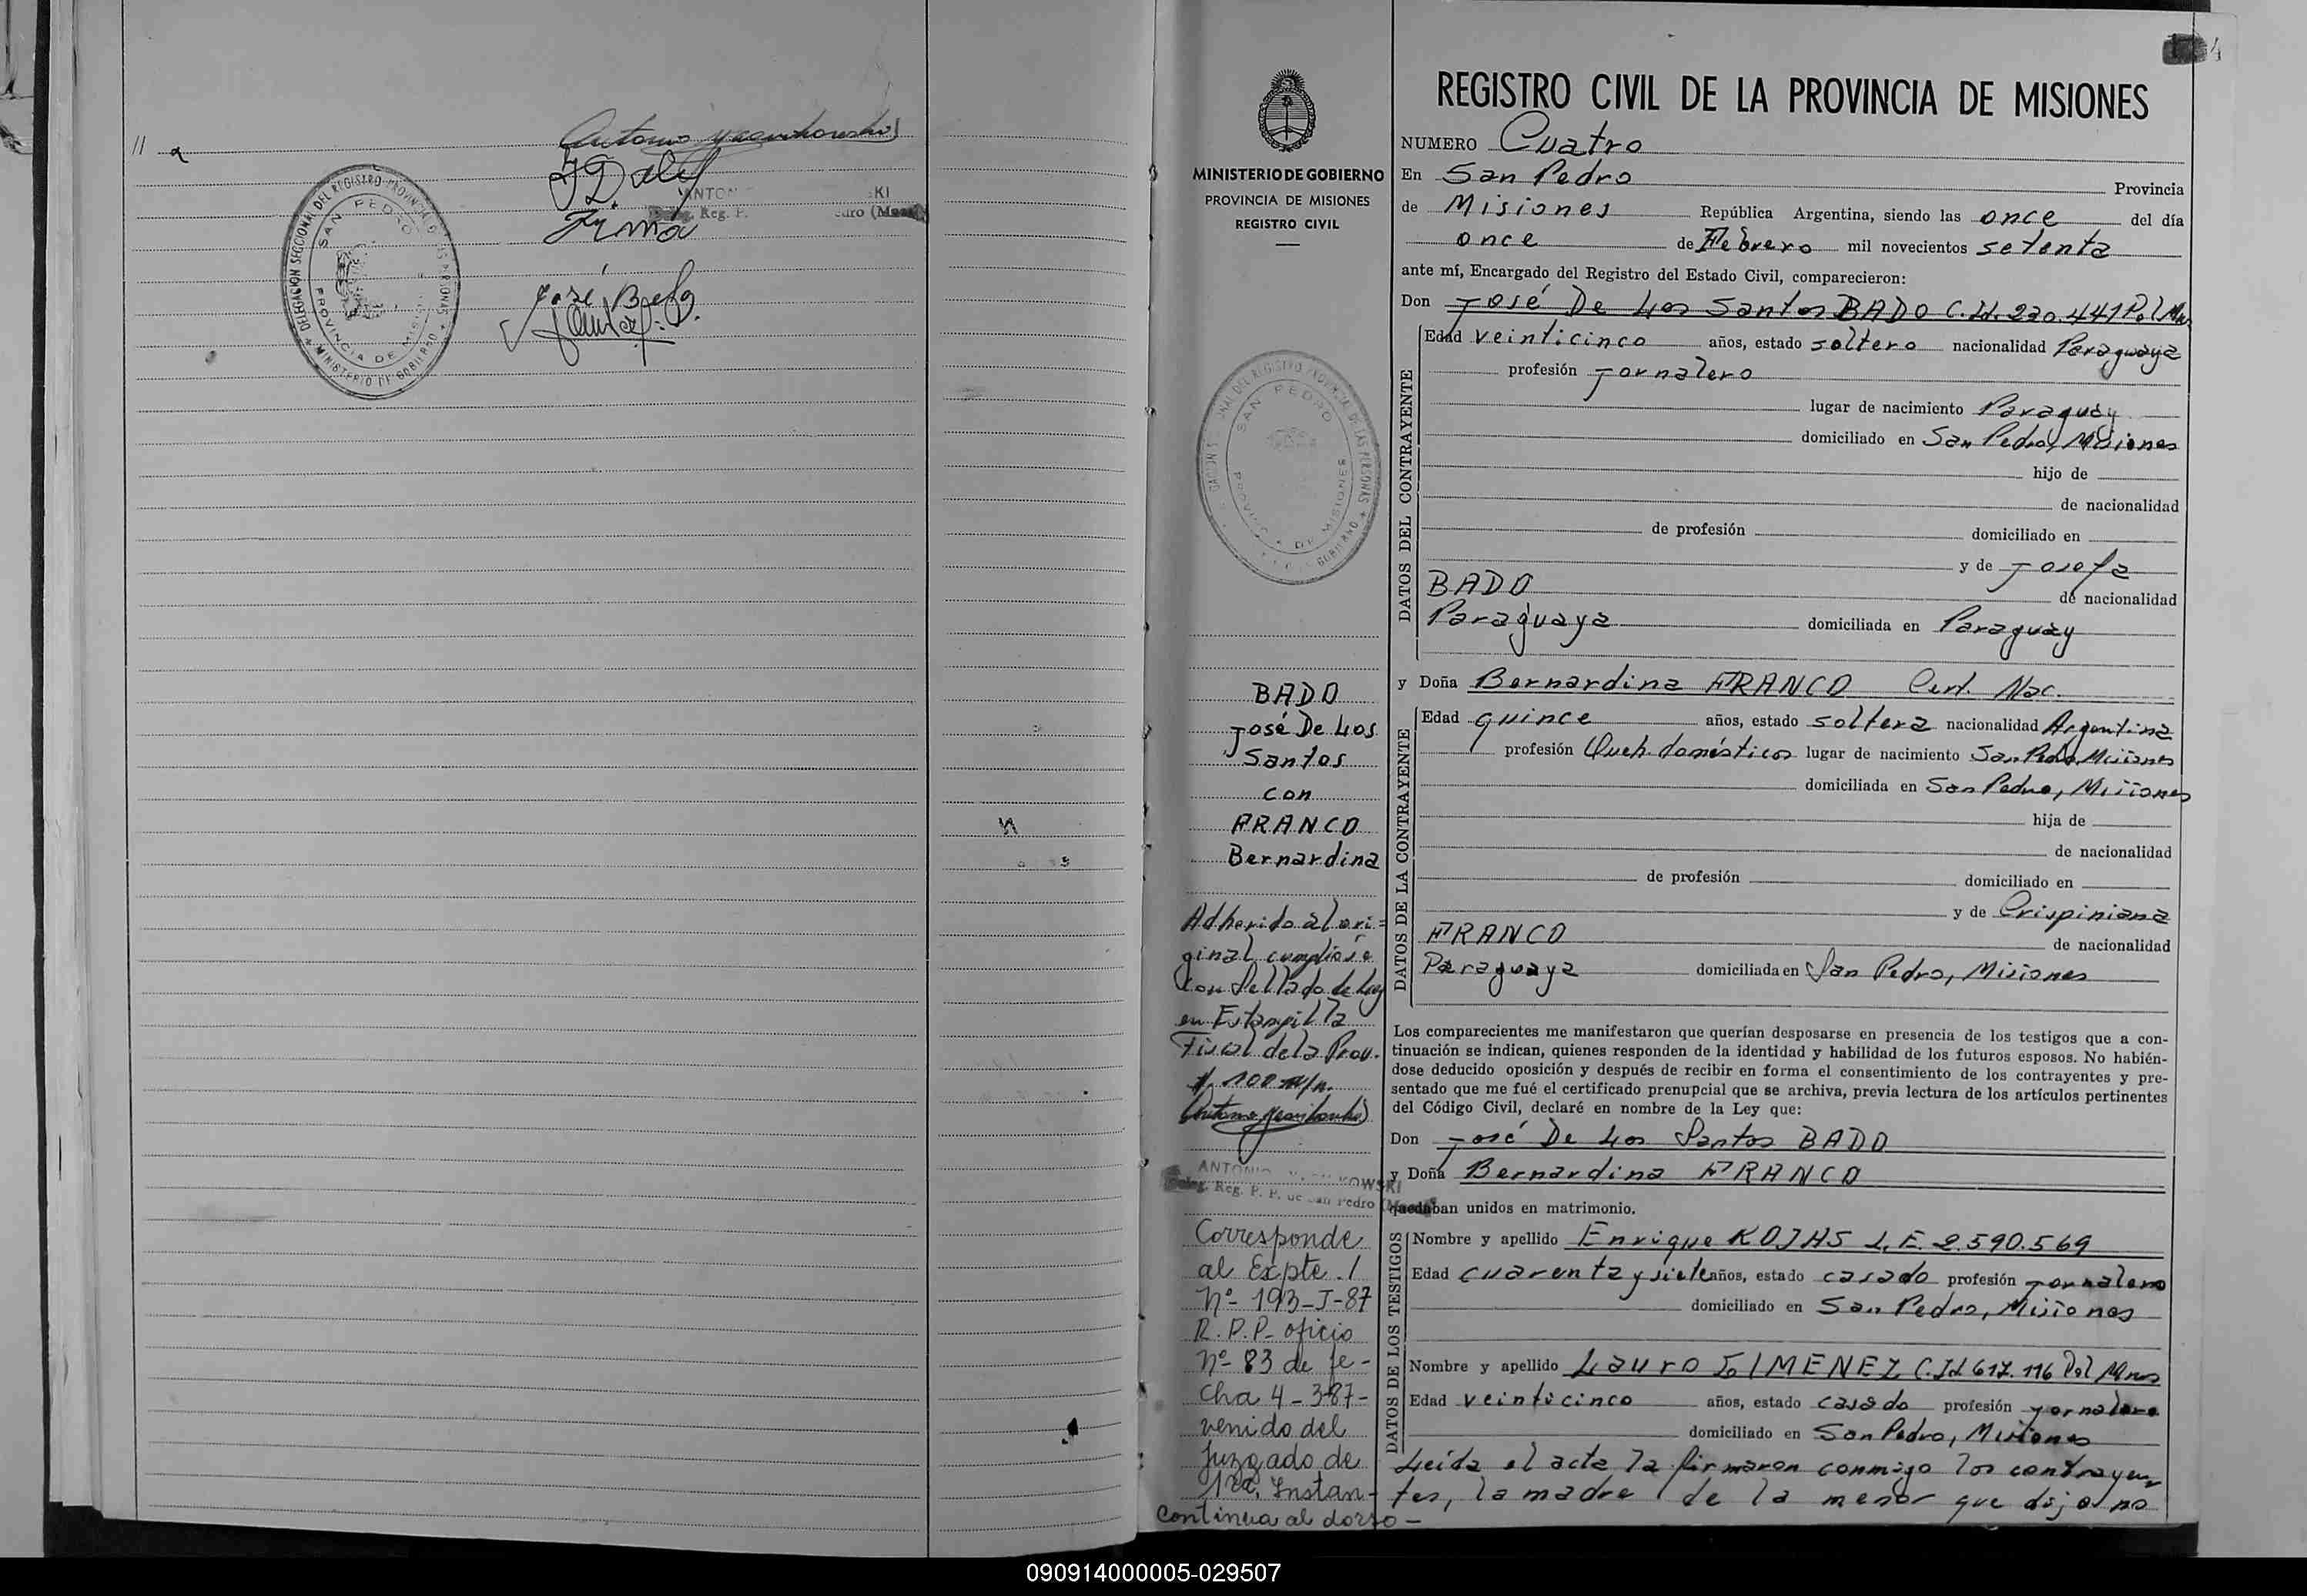 REGISTRO CIVIL DE LA PROVINCIA DE MISIONES
MINISTERIO DE GOBIERNO
PROVINCIA DE MISIONES
REGISTRO CIVIL
NUMERO Cuatro
En San Pedro Provincia
de Misiones República Argentina, siendo las once del día
once de Febrero mil novecientos setenta
ante mí, Encargado del Registro del Estado Civil, comparecieron:
Don José De Los Santos BADO C.Id. 220.441 Pol Mnes
DATOS DEL CONTRAYENTE
Edad veinticinco años, estado soltero nacionalidad Paraguaya
profesión Jornalero
lugar de nacimiento Paraguay
domiciliado en San Pedro, Misiones
hijo de
de nacionalidad
de profesión domiciliado en
y de Josefa
BADO de nacionalidad
Paraguaya domiciliada en Paraguay
y Doña Bernardina FRANCO Cert. Nac.
DATOS DE LA CONTRAYENTE
Edad quince años, estado soltera nacionalidad Argentina
profesión Queh. domésticos lugar de nacimiento San Pedro, Misiones
domiciliada en San Pedro, Misiones
hija de
de nacionalidad
de profesión domiciliado en
y de Crispiniana
FRANCO de nacionalidad
Paraguaya domiciliada en San Pedro, Misiones
Los comparecientes me manifestaron que querían desposarse en presencia de los testigos que a con-
tinuación se indican, quienes responden de la identidad y habilidad de los futuros esposos. No habién-
dose deducido oposición y después de recibir en forma el consentimiento de los contrayentes y pre-
sentado que me fué el certificado prenupcial que se archiva, previa lectura de los artículos pertinentes
del Código Civil, declaré en nombre de la Ley que:
Don José De Los Santos BADO
y Doña Bernardina FRANCO
quedaban unidos en matrimonio.
DATOS DE LOS TESTIGOS
Nombre y apellido Enrique ROJAS L.E. 2.590.569
Edad cuarenta y siete años, estado casado profesión Jornalero
domiciliado en San Pedro, Misiones
Nombre y apellido Lauro GIMENEZ C.Id 617.116 Pol Mnes
Edad veinticinco años, estado casado profesión Jornalero
domiciliado en San Pedro, Misiones
Leída el acta la firmaron conmigo los contrayen
tes, la madre de la menor que dijo no
BADO
José De Los
Santos
con
FRANCO
Bernardina
Adherido al ori=
ginal cumplióse
con Sellado de Ley
en Estampilla
Fiscal de la Prov.
$ 100 m/n.
Corresponde
al Expte. /
Nº- 193-J-87
R.P.P- oficio
Nº- 83 de fe-
cha 4-3-87-
venido del
Juzgado de
1ra. Instan-
continua al dorso-
DELEGACION SECCIONAL DEL REGISTRO PROVINCIAL DE LAS PERSONAS
SAN PEDRO
PROVINCIA DE MISIONES
MINISTERIO DE GOBIERNO
090914000005-029507